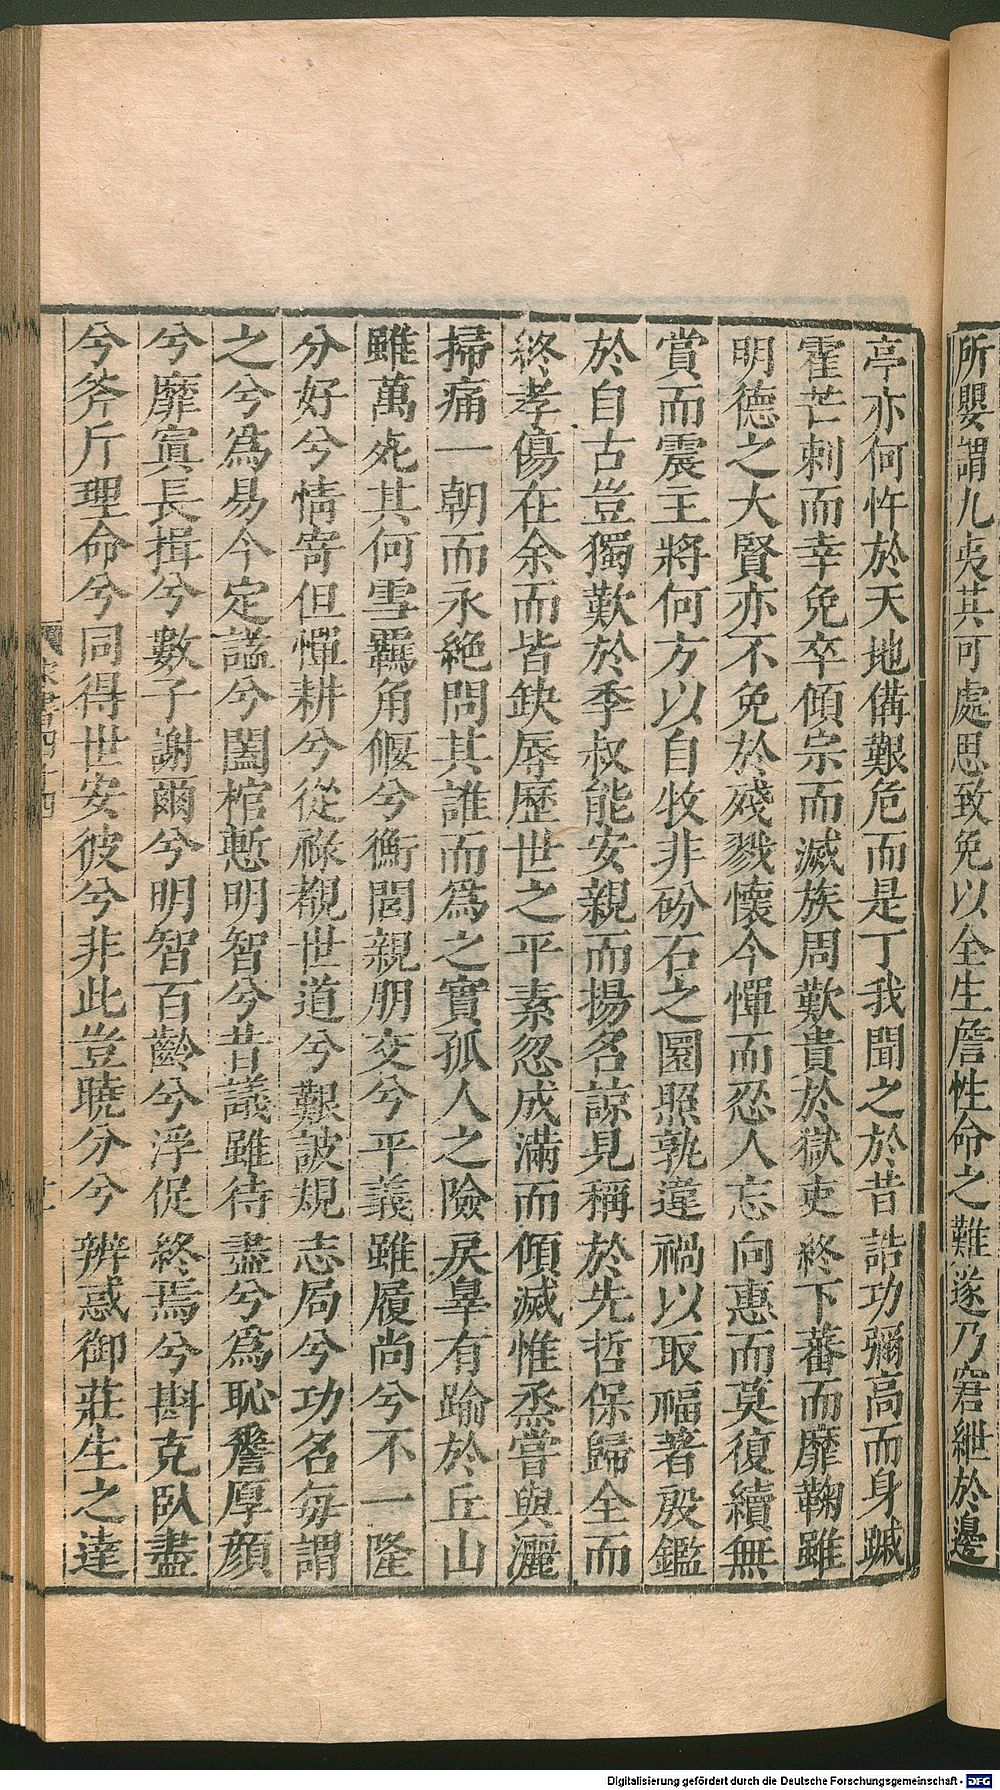 所嬰謂九夷其可處思致免以全生嗟性命之難遂乃窘紲於邊
亭亦何忤於天地備艱危而是丁我聞之於昔誥功彌高而身蹙
霍芒刺而幸免卒傾宗而滅族周歎貴於獄吏終下蕃而靡鞠雖
明德之大賢亦不免於殘戮懷今憚而忍人忘向惠而莫復績無
賞而震主將何方以自牧非砏石之圓照孰違禍以取福著殷鑑
於自古豈獨歎於季叔能安親而揚名諒見稱於先哲保歸全而
終孝傷在余而皆缺辱歷世之平素忽成滿而傾滅惟烝嘗與灑
掃痛一朝而永絕問其誰而為之實孤人之險戾辠有踰於丘山
雖萬死其何雪羈角偃兮衡閭親朋交兮平義雖履尚兮不一隆
分好兮情寄但憚耕兮從祿覩世道兮艱詖規志局兮功名每謂
之兮為易今定謚兮闔棺慙明智兮昔議雖待盡兮為恥嗟厚顏
兮靡寘長揖兮數子謝爾兮明智百齡兮浮促終焉兮斟克臥盡
兮斧斤理命兮同得世安彼兮非此豈曉分兮辨惑御莊生之達
宋書四十四